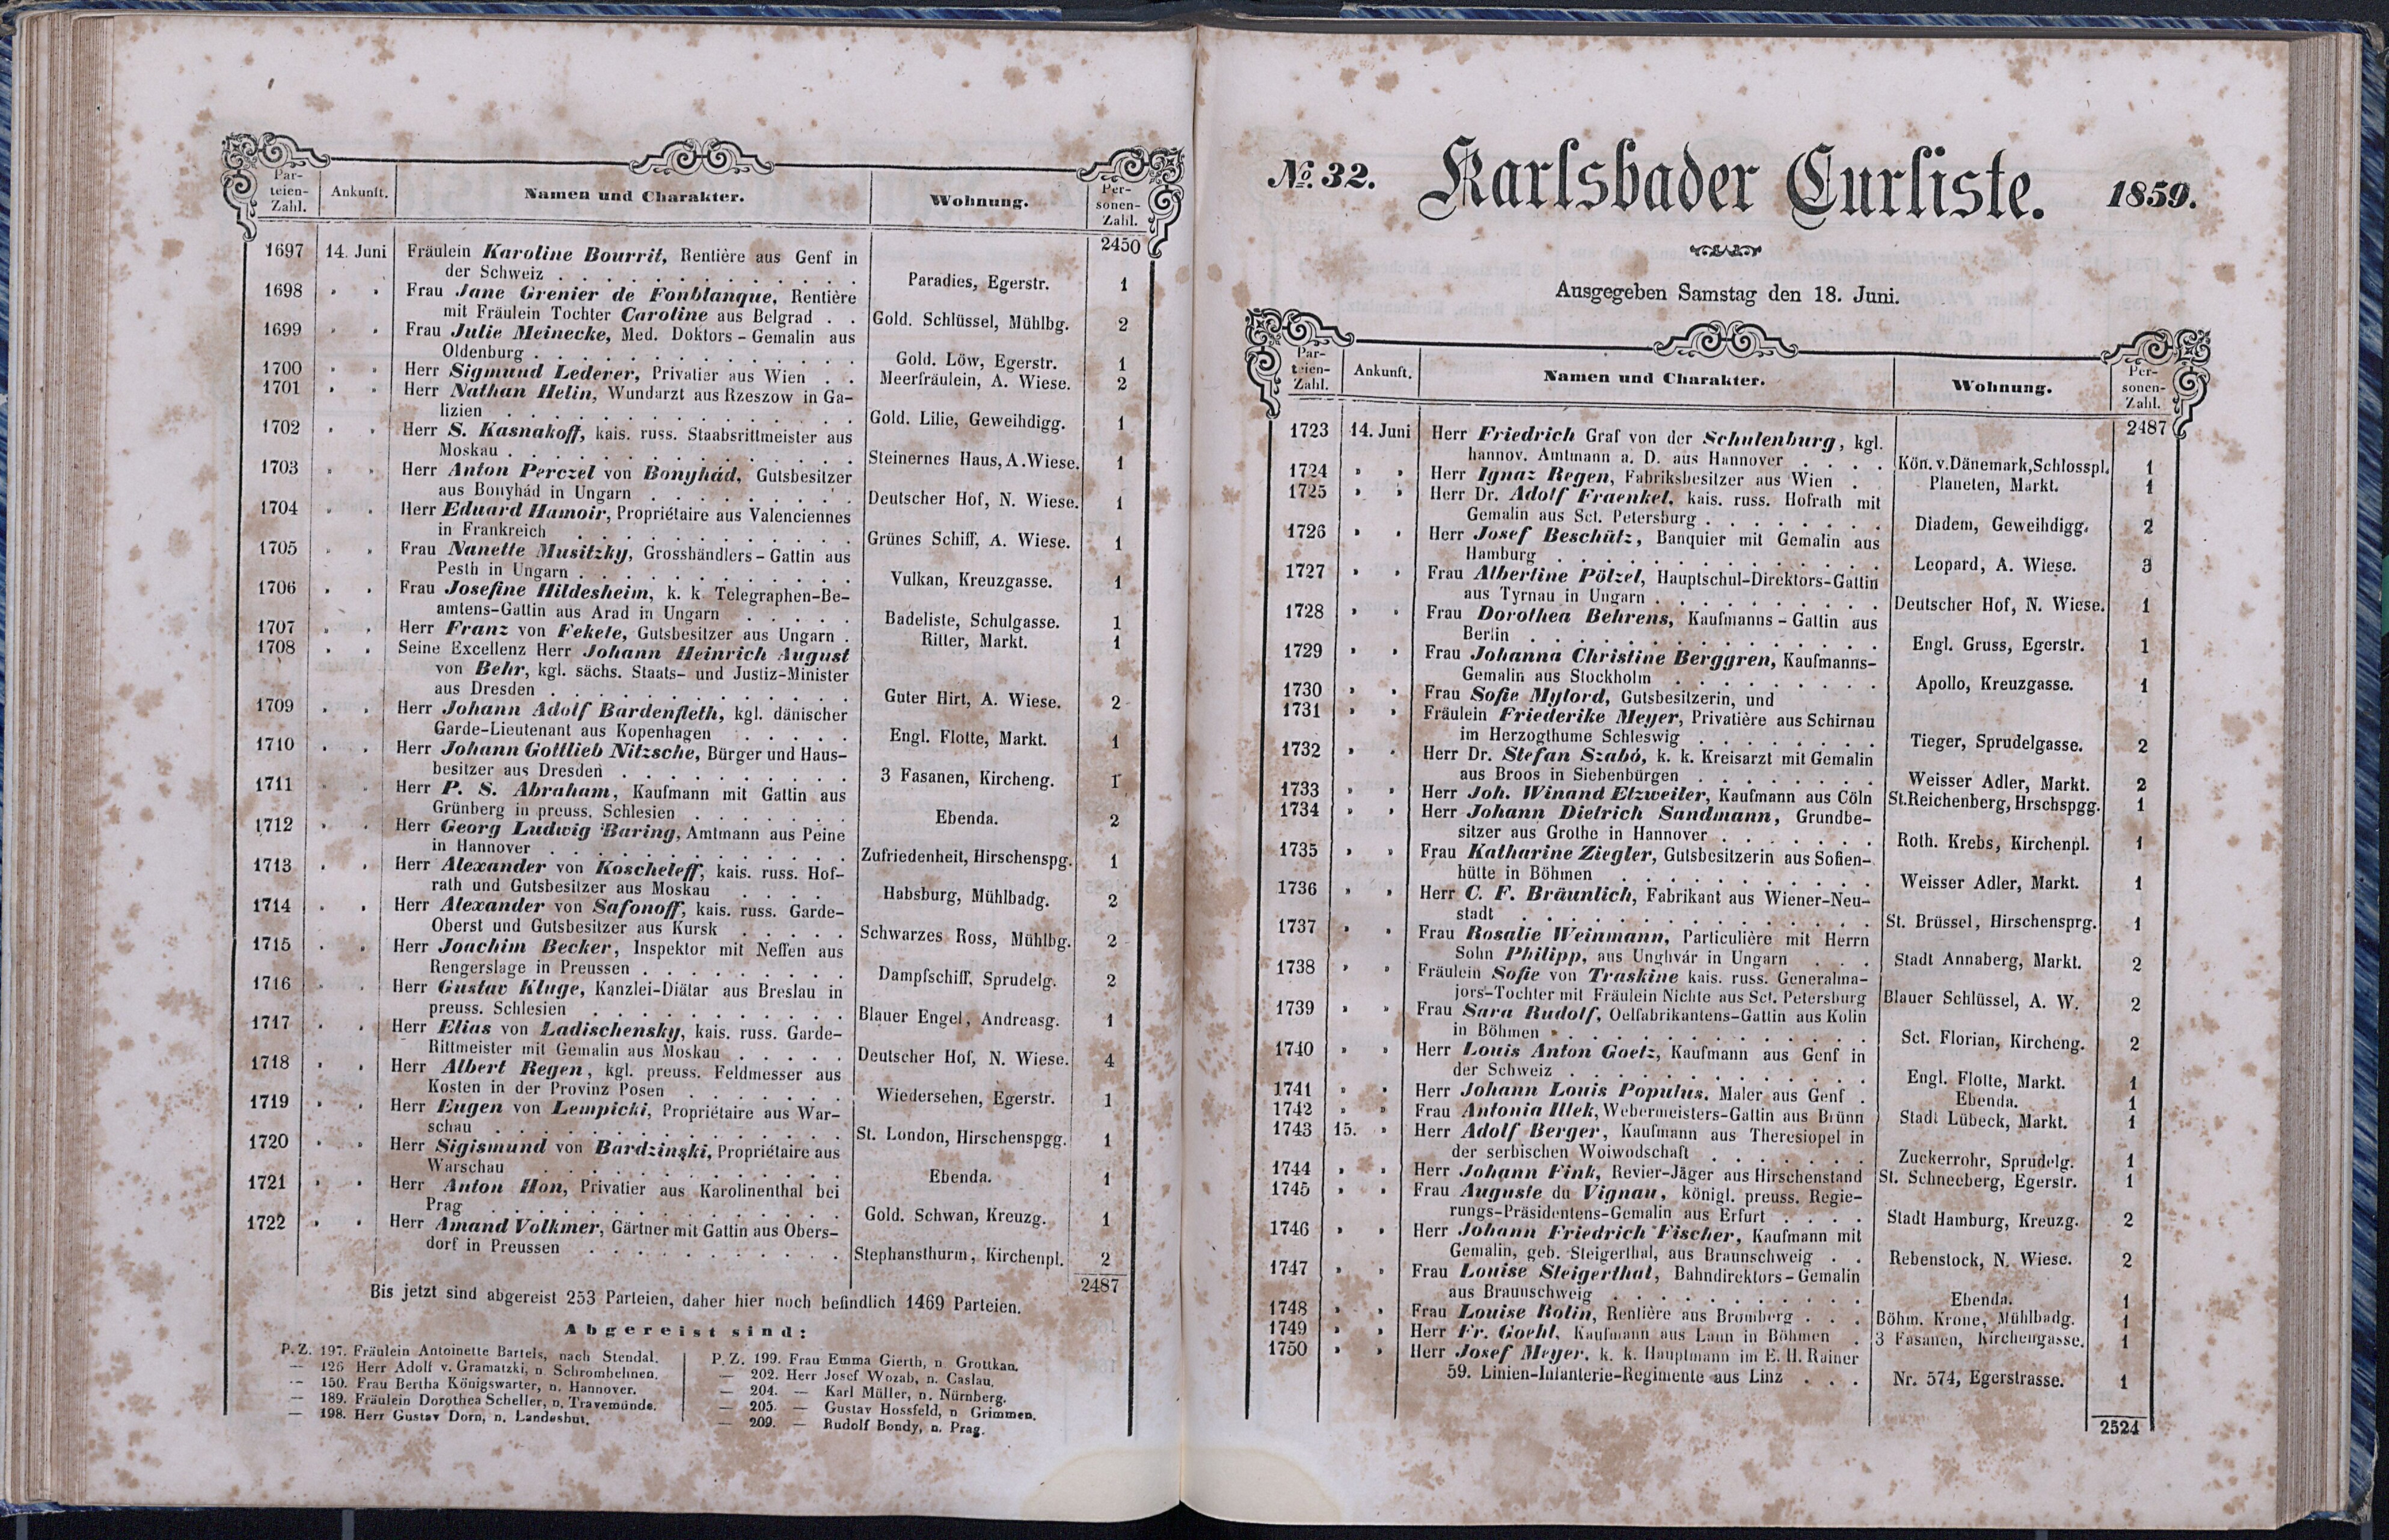 Par-
teien-
Zahl. Ankunft. Namen und Charakter. Wohnung. Per-
sonen-
Zahl.
2450
1697 14. Juni Fräulein Karoline Bourrit, Rentière aus Genf in
der Schweiz . . . . . . . . . . . . Paradies, Egerstr. 1
1698 " " Frau Jane Grenier de Fonblanque, Rentière
mit Fräulein Tochter Caroline aus Belgrad . . Gold. Schlüssel, Mühlbg. 2
1699 " " Frau Julie Meinecke, Med. Doktors-Gemalin aus
Oldenburg . . . . . . . . . . . . . Gold. Löw, Egerstr. 1
1700 " " Herr Sigmund Lederer, Privatier aus Wien . . Meerfräulein, A. Wiese. 2
1701 " " Herr Nathan Helin, Wundarzt aus Rzeszow in Ga-
lizien . . . . . . . . . . . . . . Gold. Lilie, Geweihdigg. 1
1702 " " Herr S. Kasnakoff, kais. russ. Staabsrittmeister aus
Moskau . . . . . . . . . . . . . . Steinernes Haus, A. Wiese. 1
1703 " " Herr Anton Perczel von Bonyhád, Gutsbesitzer
aus Bonyhád in Ungarn . . . . . . . . Deutscher Hof, N. Wiese. 1
1704 " " Herr Eduard Hamoir, Propriétaire aus Valenciennes
in Frankreich . . . . . . . . . . . . Grünes Schiff, A. Wiese. 1
1705 " " Frau Nanette Musitzky, Grosshändlers-Gattin aus
Pesth in Ungarn . . . . . . . . . . . Vulkan, Kreuzgasse. 1
1706 " " Frau Josefine Hildesheim, k. k. Telegraphen-Be-
amtens-Gattin aus Arad in Ungarn . . . . . Badeliste, Schulgasse. 1
1707 " " Herr Franz von Fekete, Gutsbesitzer aus Ungarn . Ritter, Markt. 1
1708 " " Seine Excellenz Herr Johann Heinrich August
von Behr, kgl. sächs. Staats- und Justiz-Minister
aus Dresden . . . . . . . . . . . . Guter Hirt, A. Wiese. 2
1709 " " Herr Johann Adolf Bardenfleth, kgl. dänischer
Garde-Lieutenant aus Kopenhagen . . . . . Engl. Flotte, Markt. 1
1710 " " Herr Johann Gottlieb Nitzsche, Bürger und Haus-
besitzer aus Dresden . . . . . . . . . 3 Fasanen, Kircheng. 1
1711 " " Herr P. S. Abraham, Kaufmann mit Gattin aus
Grünberg in preuss. Schlesien . . . . . . . Ebenda. 2
1712 " " Herr Georg Ludwig Baring, Amtmann aus Peine
in Hannover . . . . . . . . . . . . Zufriedenheit, Hirschenspg. 1
1713 " " Herr Alexander von Koscheleff, kais. russ. Hof-
rath und Gutsbesitzer aus Moskau . . . . . Habsburg, Mühlbadg. 2
1714 " " Herr Alexander von Safonoff, kais. russ. Garde-
Oberst und Gutsbesitzer aus Kursk . . . . . Schwarzes Ross, Mühlbg. 2
1715 " " Herr Joachim Becker, Inspektor mit Neffen aus
Rengerslage in Preussen . . . . . . . . . Dampfschiff, Sprudelg. 2
1716 " " Herr Gustav Kluge, Kanzlei-Diätar aus Breslau in
preuss. Schlesien . . . . . . . . . . . Blauer Engel, Andreasg. 1
1717 " " Herr Elias von Ladischensky, kais. russ. Garde-
Rittmeister mit Gemalin aus Moskau . . . . . Deutscher Hof, N. Wiese. 4
1718 " " Herr Albert Regen, kgl. preuss. Feldmesser aus
Kosten in der Provinz Posen . . . . . . . Wiedersehen, Egerstr. 1
1719 " " Herr Eugen von Lempicki, Propriétaire aus War-
schau . . . . . . . . . . . . . . St. London, Hirschenspgg. 1
1720 " " Herr Sigismund von Bardzinski, Propriétaire aus
Warschau . . . . . . . . . . . . . Ebenda. 1
1721 " " Herr Anton Hon, Privatier aus Karolinenthal bei
Prag . . . . . . . . . . . . . . . Gold. Schwan, Kreuzg. 1
1722 " " Herr Amand Volkmer, Gärtner mit Gattin aus Obers-
dorf in Preussen . . . . . . . . . . . Stephansthurm, Kirchenpl. 2
2487
Bis jetzt sind abgereist 253 Parteien, daher hier noch befindlich 1469 Parteien.
Abgereist sind:
P. Z. 197. Fräulein Antoinette Bartels, nach Stendal.
— 126 Herr Adolf v. Gramatzki, n Schrombehnen.
— 150. Frau Bertha Königswarter, n. Hannover.
— 189. Fräulein Dorothea Scheller, n. Travemünde.
— 198. Herr Gustav Dorn, n. Landeshut.
P. Z. 199. Frau Emma Gierth, n Grottkan.
— 202. Herr Josef Wozab, n. Caslau.
— 204. — Karl Müller, n. Nürnberg.
— 205. — Gustav Hossfeld, n Grimmen.
— 209. — Rudolf Bondy, n. Prag.
No. 32. Karlsbader Curliste. 1859.
Ausgegeben Samstag den 18. Juni.
Par-
teien-
Zahl. Ankunft. Namen und Charakter. Wohnung. Per-
sonen-
Zahl.
2487
1723 14. Juni Herr Friedrich Graf von der Schulenburg, kgl.
hannov. Amtmann a. D. aus Hannover . . . . Kön. v. Dänemark, Schlosspl. 1
1724 " " Herr Ignaz Regen, Fabriksbesitzer aus Wien . Planeten, Markt. 1
1725 " " Herr Dr. Adolf Fraenkel, kais. russ. Hofrath mit
Gemalin aus Sct. Petersburg . . . . . . . Diadem, Geweihdigg. 2
1726 " " Herr Josef Beschütz, Banquier mit Gemalin aus
Hamburg . . . . . . . . . . . . . Leopard, A. Wiese. 3
1727 " " Frau Albertine Pölzel, Hauptschul-Direktors-Gattin
aus Tyrnau in Ungarn . . . . . . . . . Deutscher Hof, N. Wiese. 1
1728 " " Frau Dorothea Behrens, Kaufmanns-Gattin aus
Berlin . . . . . . . . . . . . . . Engl. Gruss, Egerstr. 1
1729 " " Frau Johanna Christine Berggren, Kaufmanns-
Gemalin aus Stockholm . . . . . . . . . Apollo, Kreuzgasse. 1
1730 " " Frau Sofie Mylord, Gutsbesitzerin, und
1731 " " Fräulein Friederike Meyer, Privatière aus Schirnau
im Herzogthume Schleswig . . . . . . . . Tieger, Sprudelgasse. 2
1732 " " Herr Dr. Stefan Szabó, k. k. Kreisarzt mit Gemalin
aus Broos in Siebenbürgen . . . . . . . . Weisser Adler, Markt. 2
1733 " " Herr Joh. Winand Etzweiler, Kaufmann aus Cöln St. Reichenberg, Hrschspgg. 1
1734 " " Herr Johann Dietrich Sandmann, Grundbe-
sitzer aus Grothe in Hannover . . . . . . . Roth. Krebs, Kirchenpl. 1
1735 " " Frau Katharine Ziegler, Gutsbesitzerin aus Sofien-
hütte in Böhmen . . . . . . . . . . . Weisser Adler, Markt. 1
1736 " " Herr C. F. Bräunlich, Fabrikant aus Wiener-Neu-
stadt . . . . . . . . . . . . . . . St. Brüssel, Hirschensprg. 1
1737 " " Frau Rosalie Weinmann, Particulière mit Herrn
Sohn Philipp, aus Unghvár in Ungarn . . . Stadt Annaberg, Markt. 2
1738 " " Fräulein Sofie von Traskine kais. russ. Generalma-
jors-Tochter mit Fräulein Nichte aus Sct. Petersburg Blauer Schlüssel, A. W. 2
1739 " " Frau Sara Rudolf, Oelfabrikantens-Gattin aus Kolin
in Böhmen . . . . . . . . . . . . . Sct. Florian, Kircheng. 2
1740 " " Herr Louis Anton Goetz, Kaufmann aus Genf in
der Schweiz . . . . . . . . . . . . Engl. Flotte, Markt. 1
1741 " " Herr Johann Louis Populus, Maler aus Genf . Ebenda. 1
1742 " " Frau Antonia Illek, Webermeisters-Gattin aus Brünn Stadt Lübeck, Markt. 1
1743 15. " Herr Adolf Berger, Kaufmann aus Theresiopel in
der serbischen Woiwodschaft . . . . . . . Zuckerrohr, Sprudelg. 1
1744 " " Herr Johann Fink, Revier-Jäger aus Hirschenstand St. Schneeberg, Egerstr. 1
1745 " " Frau Auguste du Vignau, königl. preuss. Regie-
rungs-Präsidentens-Gemalin aus Erfurt . . . . Stadt Hamburg, Kreuzg. 2
1746 " " Herr Johann Friedrich Fischer, Kaufmann mit
Gemalin, geb. Steigerthal, aus Braunschweig . . Rebenstock, N. Wiese. 2
1747 " " Frau Louise Steigerthal, Bahndirektors-Gemalin
aus Braunschweig . . . . . . . . . . . Ebenda. 1
1748 " " Frau Louise Rolin, Rentière aus Bromberg . . . Böhm. Krone, Mühlbadg. 1
1749 " " Herr Fr. Goehl, Kaufmann aus Laun in Böhmen . 3 Fasanen, Kirchengasse. 1
1750 " " Herr Josef Meyer, k. k. Hauptmann im E. H. Rainer
59. Linien-Infanterie-Regimente aus Linz . . . Nr. 574, Egerstrasse. 1
2524